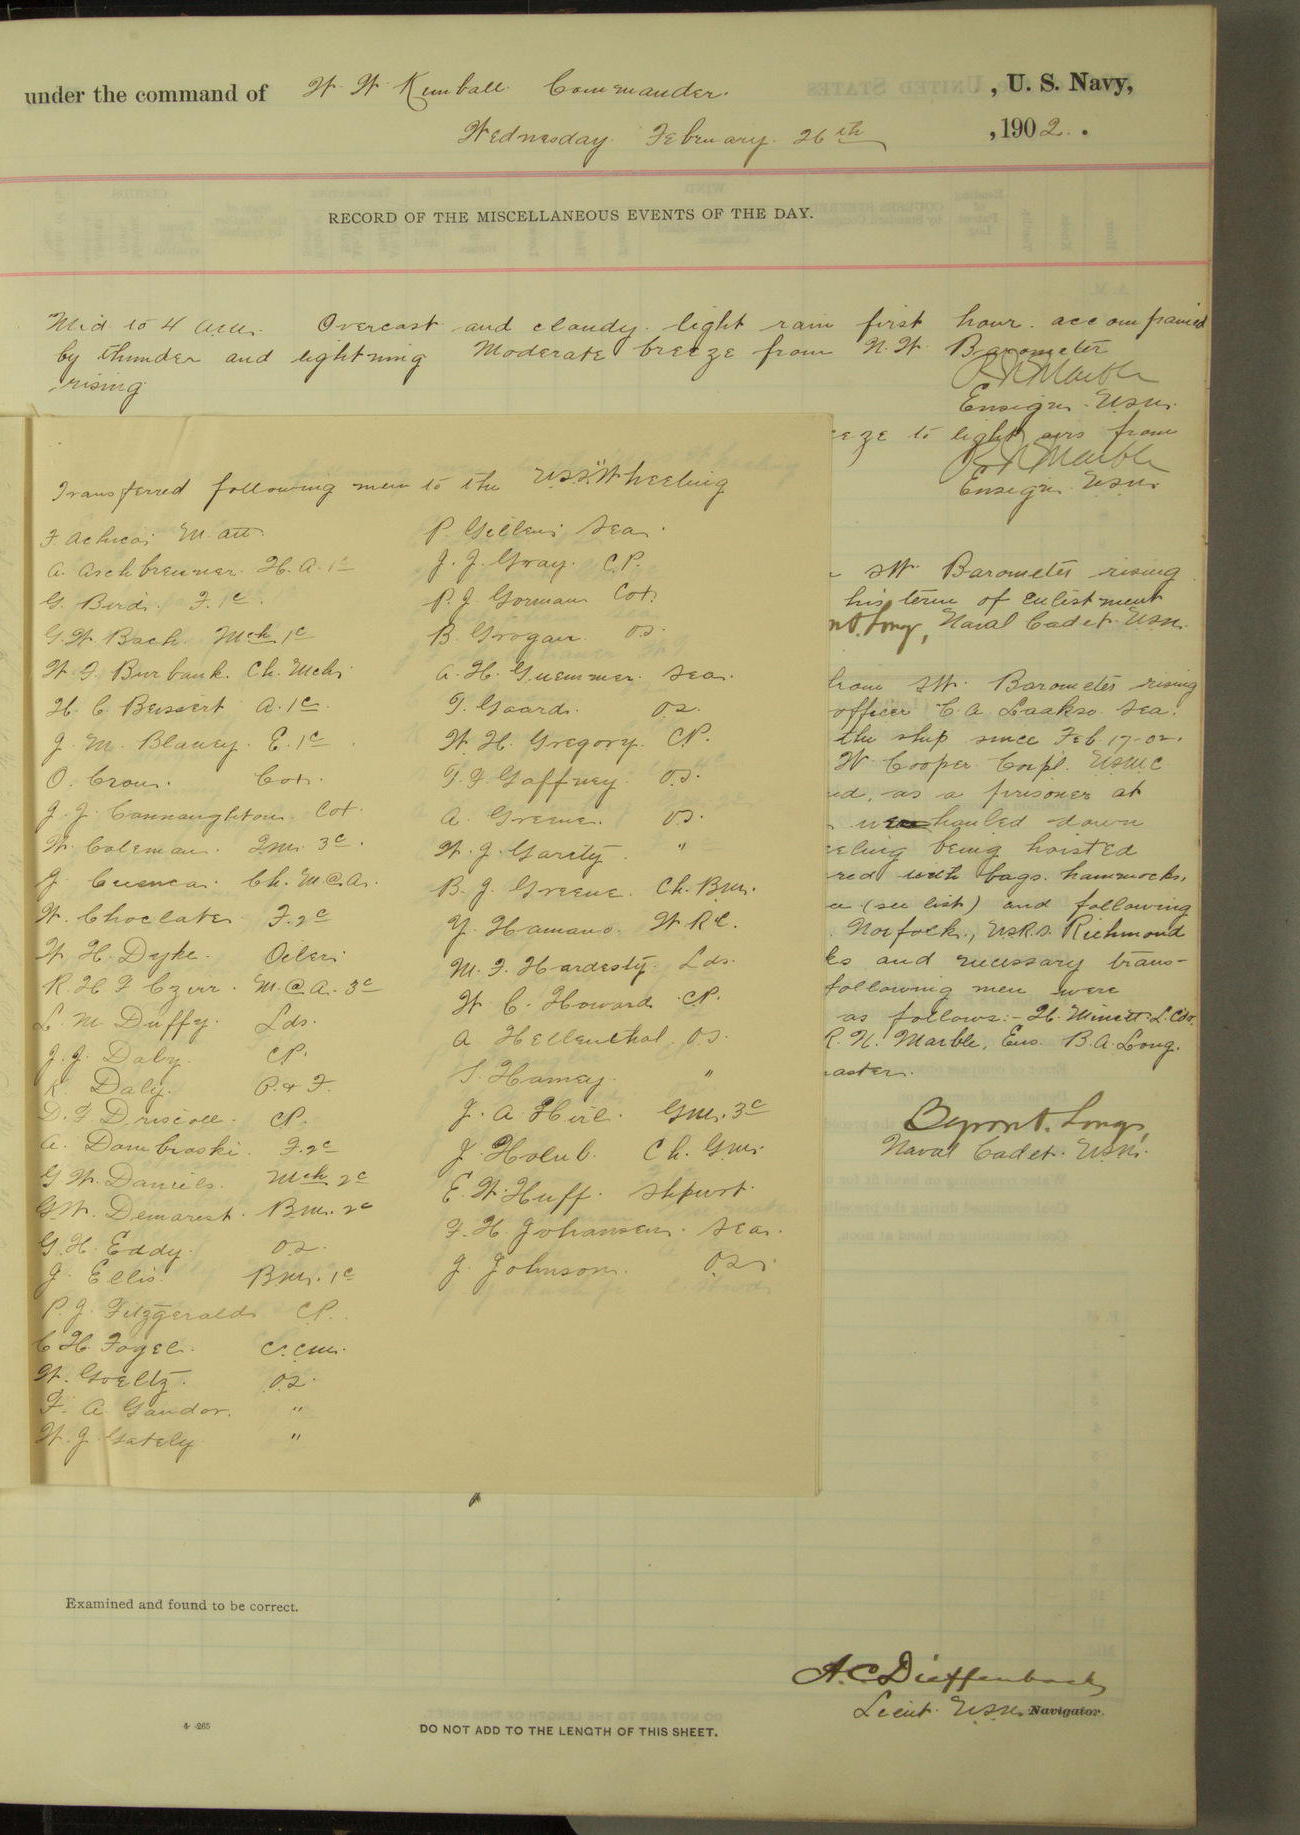 under the command of W. W. Kimball Commander. , U. S. Navy,
Wednesday February 26th , 1902.
RECORD OF THE MISCELLANEOUS EVENTS OF THE DAY.
Mid to 4 a.m. Overcast and cloudy. light rain first hour. accompanied
by thunder and lightning Moderate breeze from N.W. Barometer
rising
R N Marble
Ensign. U.S.N.
eeze to light airs from
R N Marble
Ensign U.S.N.
SW. Barometer rising
his term of enlistment
n A. Long, Naval Cadet. U.S.N.
from SW. Barometer rising
officer C. A. Laakso. Sea.
the ship since Feb. 17-02.
W Cooper Corpl. U.S.M.C
ed, as a prisoner at
were hauled down
eeling being hoisted
red with bags. hammocks,
(see list) and following
Norfolk, U.S.R.S. Richmond
ks and necessary trans-
following men were
as follows:- H. Minett L. Cdr.
R. N. Marble, Ens. B. A. Long.
aster.
Byron A. Long,
Naval Cadet. U.S.N.
Transferred following men to the U.S.S. "Wheeling
F Achica M. att.
A. Aschbrenner. H.A. 1c
G. Bird. F. 1c.
G. W. Bach Mch 1c
W. F. Burbank. Ch. Mch.
H. C. Beissert A. 1c.
J. M. Blaney. E. 1c
O. Crou. Cox.
J. J. Connaughton Cox.
W. Coleman. Q.M. 3c.
J. Cuenca. Ch. M.@A.
W. Choclater F. 2c
W. H. Dyke. Oiler
R. H. F Czerr. M.@A. 3c
L. M Duffy. Lds.
J. J. Daly. C.P.
K. Daly. P. & F.
D. F Driscoll. C.P.
A. Dombroski. F. 2c
G W. Daniels. Mch 2c
G W. Demarest. B.M. 2c
G. H. Eddy. O.S.
J. Ellis. B.M. 1c
P. J. Fitzgerald C.P.
C H. Fogel. C.C.M.
W. Goeltz. O.S.
F. A. Gandor. "
W. J. Gately "
P. Gillen Sea.
J. J. Gray. C.P.
P. J. Gorman Cox.
B. Grogan. O.S.
A. H. Guemmer. Sea.
T. Goard. O.S.
W. H. Gregory. C.P.
T. F. Gaffney. O.S.
A. Greene. O.S.
W. J. Garity. "
B. J. Greene. Ch. B.M.
Y. Hamano. W.R.C.
M. F. Hardesty. Lds.
W. C. Howard C.P.
A Hellenthal. O.S.
S. Hamey. "
J. A Hirl. G.M. 3c
J. Holub. Ch. G.M.
E. W. Huff. Shpwrt.
F. H. Johansen. Sea.
J. Johnson. O.S.
Examined and found to be correct.
A. C. Dieffenbach
Lieut. U.S.N. Navigator.
4-265
DO NOT ADD TO THE LENGTH OF THIS SHEET.